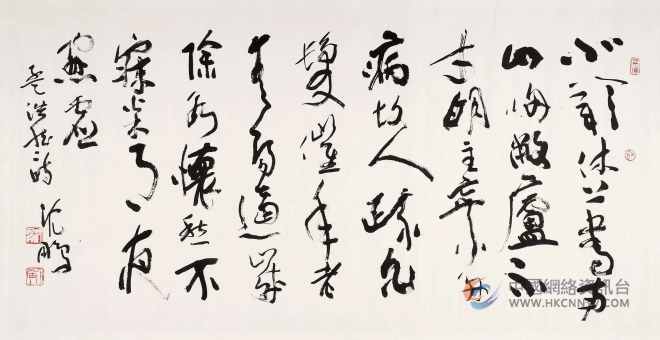 北闕休上書南
山歸敝廬不
才明主棄多
病故人疏白
髮催年老
青陽逼歲
除永懷愁不
寐松月夜
窗虛
孟浩然詩
沈鵬
中國網絡資訊台